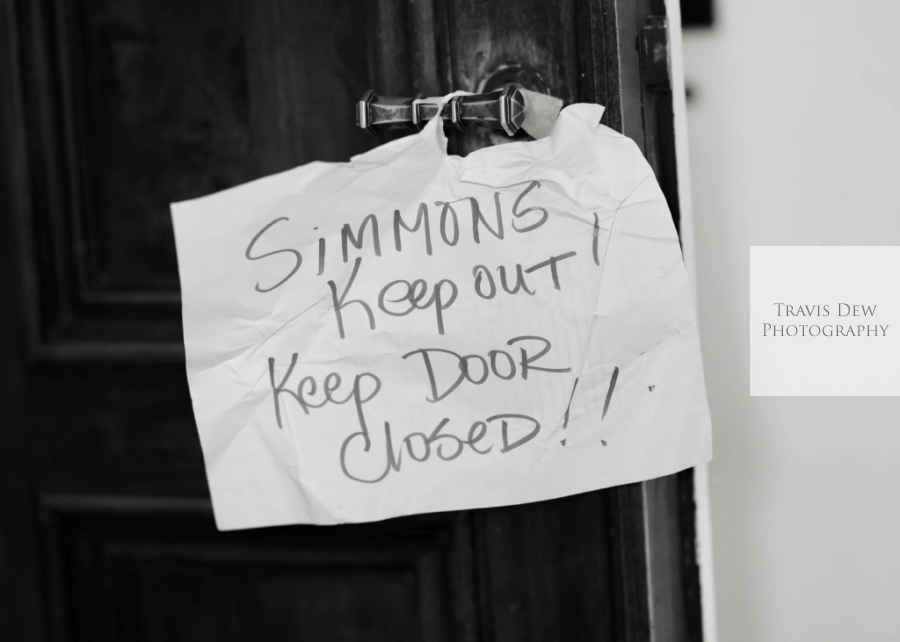 SiMMONS
Keep OUT!
Keep DOOR
ClOSeD!!
TRAVIS DEW
PHOTOGRAPHY